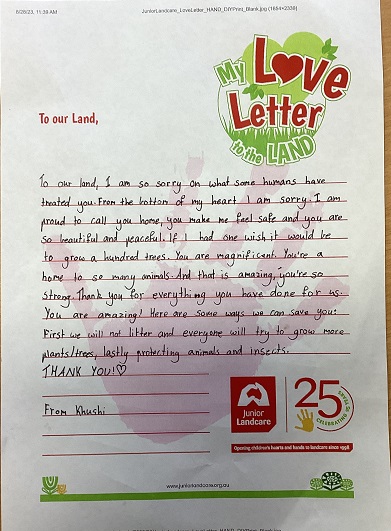 8/28/23, 11:39 AM
JuniorLandcare_LoveLetter_HAND_DIYPrint_Blank.jpg (1654×2339)
My Love
Letter
to the LAND
To our Land,
To our land, I am so sorry on what some humans have
treated you. From the bottom of my heart I am sorry. I am
proud to call you home, you make me feel safe and you are
so beautiful and peaceful. If I had one wish it would be
to grow a hundred trees. You are magnificent. You're a
home to so many animals. And that is amazing, you're so
strong. Thank you for everything you have done for us.
You are amazing! Here are some ways we can save you:
First we will not litter and everyone will try to grow more
plants/trees, lastly protecting animals and insects.
THANK YOU!♡
From Khushi
Junior
Landcare
25
CELEBRATING 25 YEARS
Opening children's hearts and hands to landcare since 1998
www.juniorlandcare.org.au